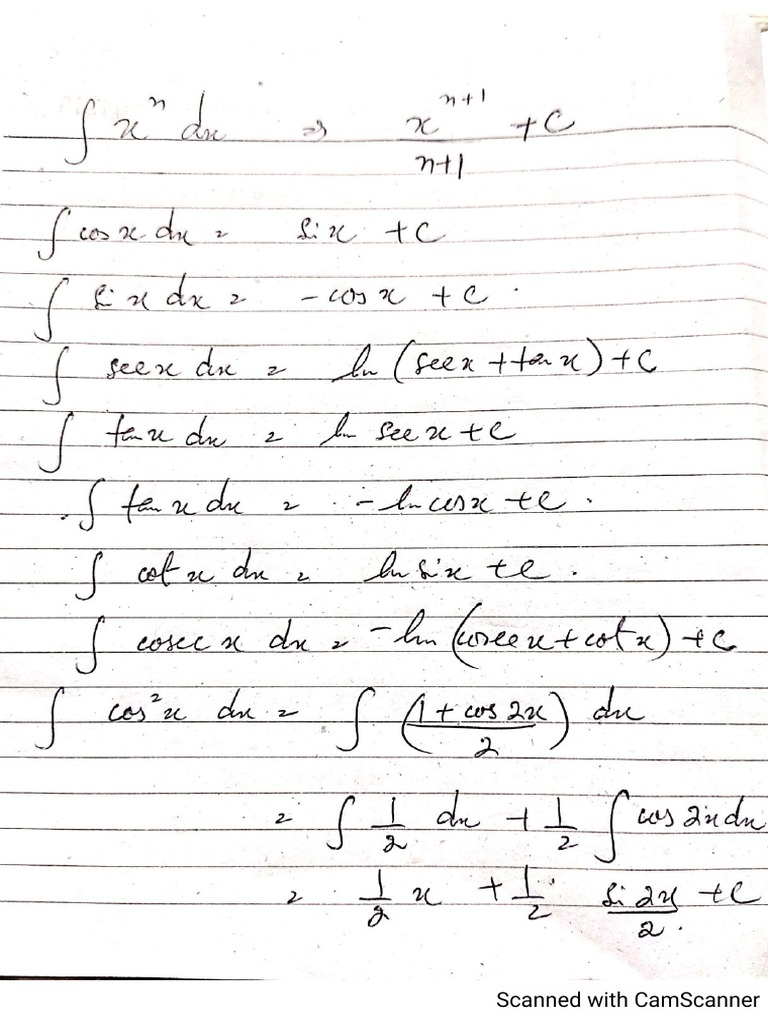 ∫ xⁿ dx ⇒ xⁿ⁺¹/n+1 + C
∫ cos x dx = si x + C
∫ si x dx = - cos x + C .
∫ sec x dx = ln (sec x + tan x) + C
∫ tan x dx = ln sec x + C
∫ tan x dx = - ln cos x + C .
∫ cot x dx = ln si x + C .
∫ cosec x dx = - ln (cosec x + cot x) + C
∫ cos² x dx = ∫ (1 + cos 2x / 2) dx
= ∫ 1/2 dx + 1/2 ∫ cos 2x dx
= 1/2 x + 1/2 si 2x/2 + C
Scanned with CamScanner